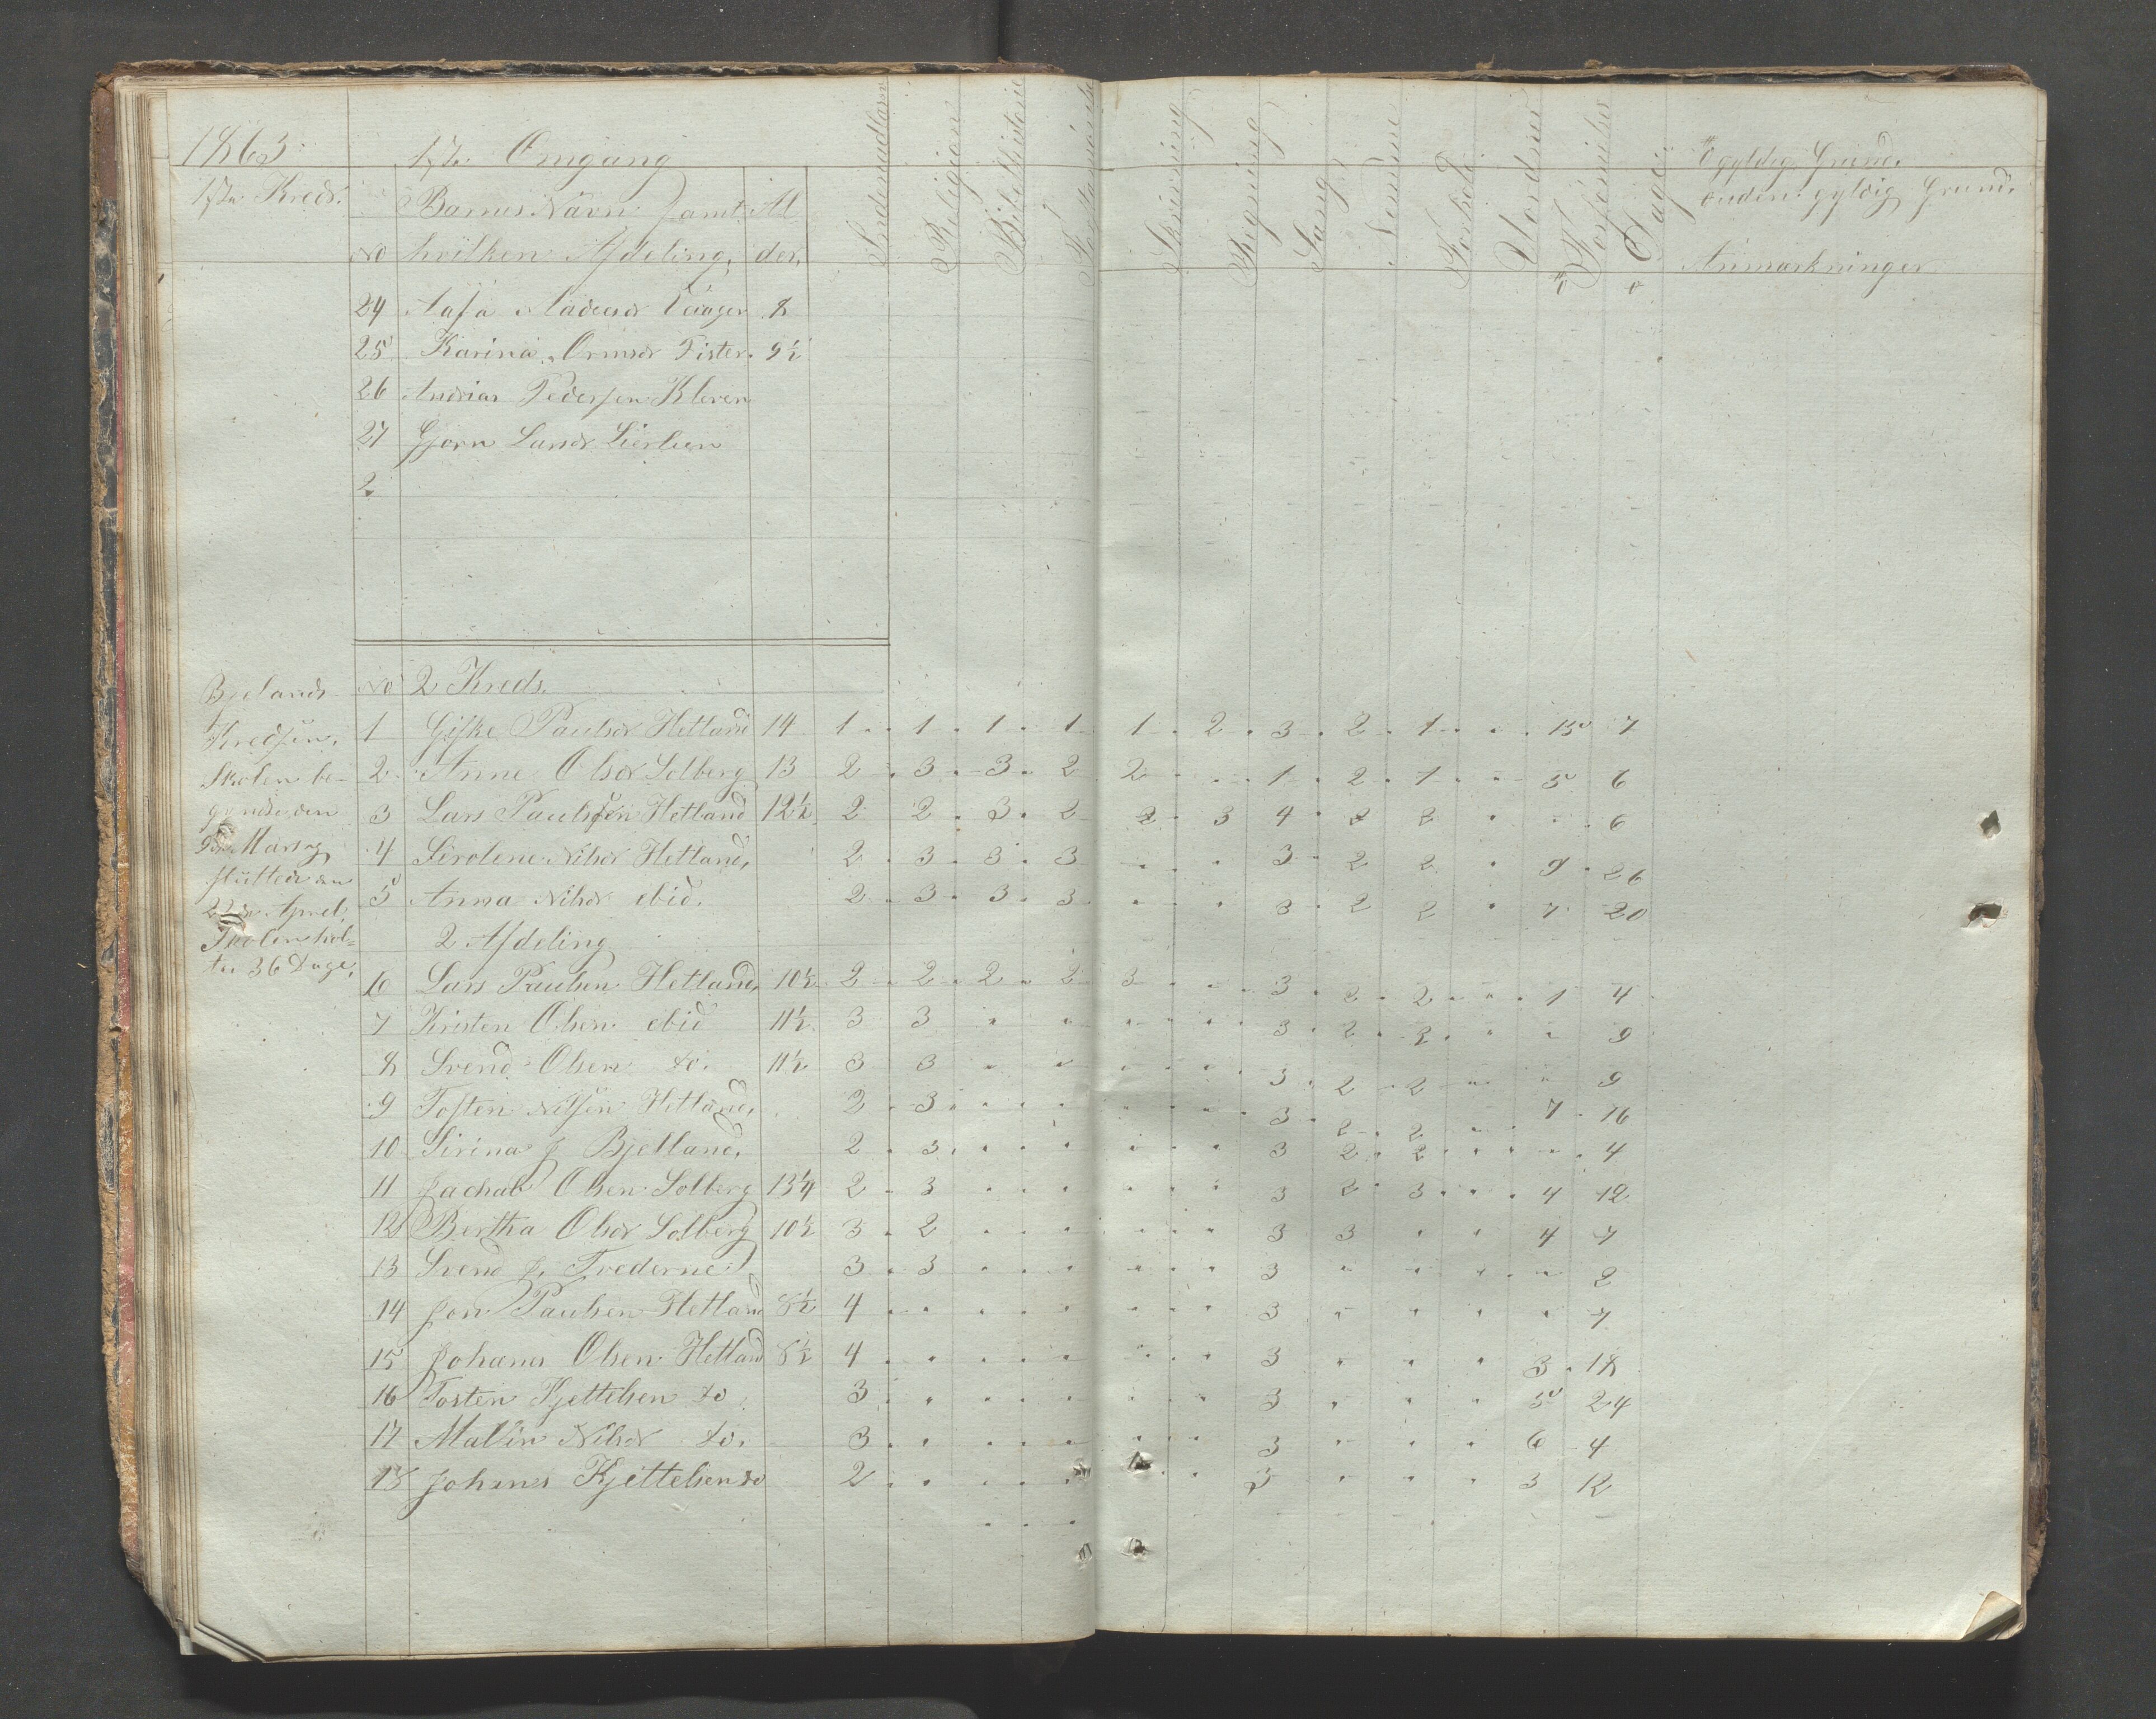 1863. 1ste Omgang
1ste Kreds. Barnets Navn samt Al
No hvilken Afdeling, der.
Indenadlæsn Religion Bibelhistorie Skrivning Regning Sang Nemme Forhold Forsømte Dage
gyldig Grund.
uden gyldig Grund.
Anmærkninger
24 8
25 Karina Ormsdr Fister. 9½
26 Andrias Pedersen Kleven
27 Larsdr
2
Bjelands-
Kredsen.
Skolen be-
gyndte den
Marts og
sluttede den
22de April.
Skolen hol-
tes 36 Dage.
No 2 Kreds.
1 Giske Paulsdr Hetland 14 1 1 1 1 1 2 3 2 1 " 15 7
2 Anne Olsdr Solberg 13 2 3 3 2 2 " 1 2 1 " 5 6
3 Lars Paulsen Hetland 12½ 2 2 3 2 2 3 4 2 2 " " 6
4 Sirolene Nilsdr Hetland, 2 3 3 3 " " 3 2 2 " 9 26
5 Anna Nilsdr ibid. 2 3 3 3 " " 3 2 2 " 7 20
2 Afdeling
6 Lars Paulsen Hetland, 10½ 2 2 2 2 3 " 3 2 2 " 1 4
7 Kristen Olsen ibid 11½ 3 3 " " " " 3 2 2 " " 9
8 Svend Olsen do. 11½ 3 3 " " " " 3 2 2 " " 9
9 Tosten Nilsen Hetland, 2 3 " " " " 3 2 2 " 7 16
10 Sirina J Bjelland, 2 3 " " " " 3 2 2 " " 4
11 Jachab Olsen Solberg 13¼ 2 3 " " " " 3 2 3 " 4 12
12 Bertha Olsdr Solberg 10½ 3 2 " " " " 3 3 " " 4 7
13 Svend J. 3 3 " " " " 3 " " " " 2
14 Jon Paulsen Hetland 8½ 4 " " " " " 3 " " " " 7
15 Johanes Olsen Hetland 8½ 4 " " " " " 3 " " " 3 18
16 Tosten Kjettelsen do 3 " " " " " 3 " " " 5 24
17 Malin Nilsdr do. 3 " " " " " 3 " " " 6 4
18 Johanes Kjettelsen do 2 " " " " " 3 " " " 3 12